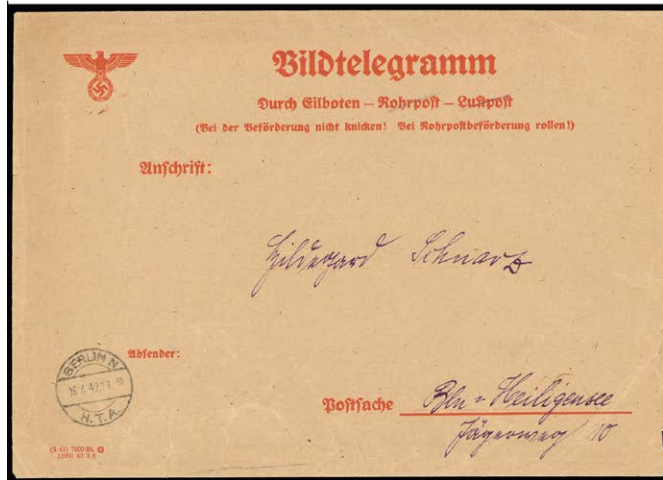 Bildtelegramm
Durch Eilboten – Rohrpost – Luftpost
(Bei der Beförderung nicht knicken! Bei Rohrpostbeförderung rollen!)
Anschrift:
Hildegard Schwarz
Absender:
BERLIN N
H.T.A.
Postsache Bln - Heiligensee
Jägerweg 10